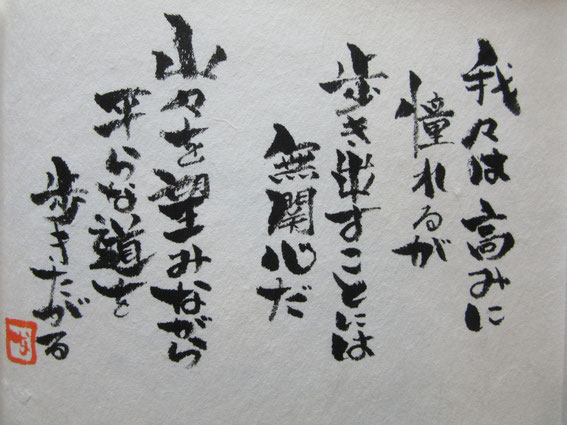 我々は高みに
憧れるが
歩き出すことには
無関心だ
山々を望みながら
平らな道を
歩きたがる